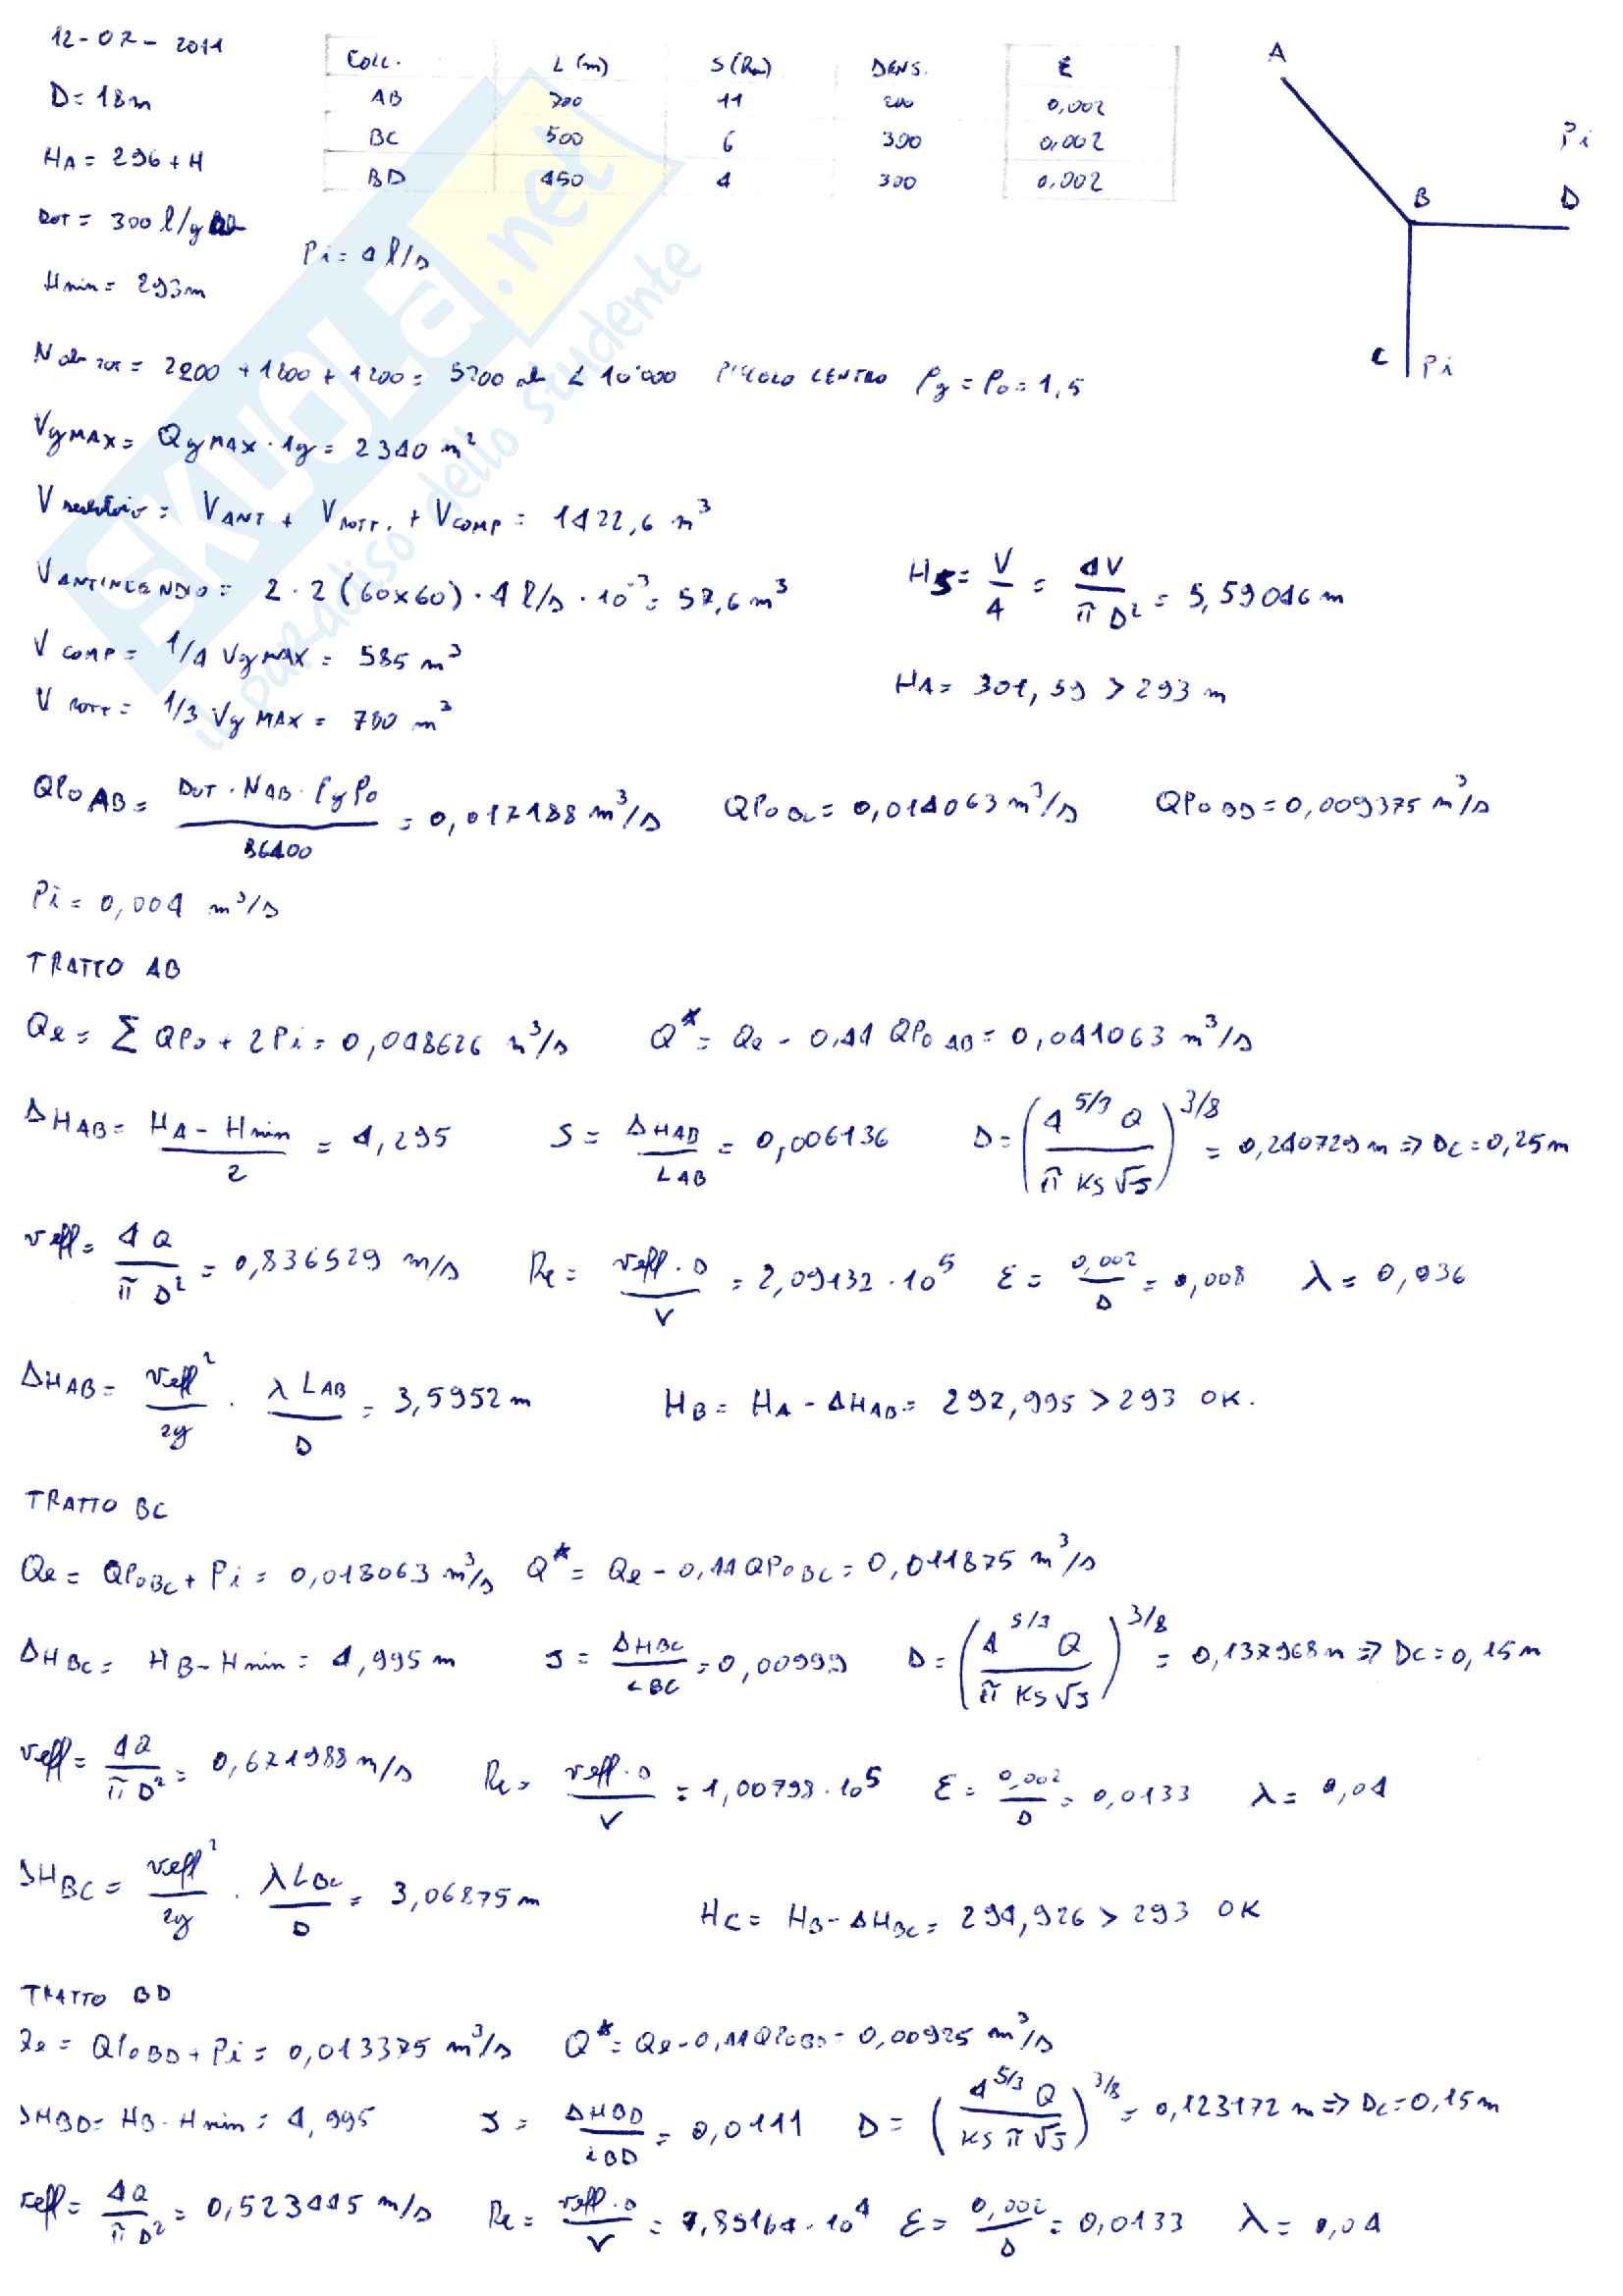 12-07-2011
Coll. L (m) S (ha) DENS. ε
AB 700 11 200 0,002
BC 500 6 300 0,002
BD 450 4 300 0,002
D = 18m
HA = 296 + H
DOT = 300 l/g
Hmin = 293m
Pi = 4 l/s
A
B
Pi
D
C
Pi
N ab TOT = 2200 + 1800 + 1200 = 5200 ab < 10'000 PICCOLO CENTRO Pg = Po = 1,5
VgMAX = QgMAX · 1g = 2340 m²
V serbatoio = VANT + VROTT. + VCOMP = 1422,6 m³
VANTINCENDIO = 2 · 2 (60x60) · 4 l/s · 10⁻³ = 57,6 m³
HS = V/A = 4V/πD² = 5,59046 m
V COMP = 1/4 VgMAX = 585 m³
HA = 301,59 > 293 m
V ROTT = 1/3 VgMAX = 780 m³
QPO AB = DOT · NAB · PgPo / 86400 = 0,017188 m³/s QPO BC = 0,014063 m³/s QPO BD = 0,009375 m³/s
Pi = 0,004 m³/s
TRATTO AB
Qe = Σ QPo + 2Pi = 0,048626 m³/s Q* = Qe - 0,44 QPO AB = 0,041063 m³/s
ΔHAB = HA - Hmin / 2 = 4,295 S = ΔHAB / LAB = 0,006136 D = (4^5/3 Q / π KS √J)^3/8 = 0,240729 m ⇒ DC = 0,25m
veff = 4Q / πD² = 0,836529 m/s Re = veff · D / ν = 2,09132 · 10⁵ ε = 0,002 / D = 0,008 λ = 0,036
ΔHAB = veff² / 2g · λ LAB / D = 3,5952 m HB = HA - ΔHAB = 297,995 > 293 OK.
TRATTO BC
Qe = QPOBC + Pi = 0,018063 m³/s Q* = Qe - 0,44 QPOBC = 0,011875 m³/s
ΔHBC = HB - Hmin = 4,995 m J = ΔHBC / LBC = 0,00999 D = (4^5/3 Q / π KS √J)^3/8 = 0,137968 m ⇒ DC = 0,15 m
veff = 4Q / πD² = 0,671988 m/s Re = veff · D / ν = 1,00798 · 10⁵ ε = 0,002 / D = 0,0133 λ = 0,04
ΔHBC = veff² / 2g · λ LBC / D = 3,06875 m HC = HB - ΔHBC = 294,926 > 293 OK
TRATTO BD
Qe = QPOBD + Pi = 0,013375 m³/s Q* = Qe - 0,44 QPOBD = 0,00925 m³/s
ΔHBD = HB - Hmin = 4,995 J = ΔHBD / LBD = 0,0111 D = (4^5/3 Q / KS π √J)^3/8 = 0,123172 m ⇒ DC = 0,15 m
veff = 4Q / πD² = 0,523445 m/s Re = veff · D / ν = 7,85164 · 10⁴ ε = 0,002 / D = 0,0133 λ = 0,04
SKUOLA.net
il paradiso dello studente